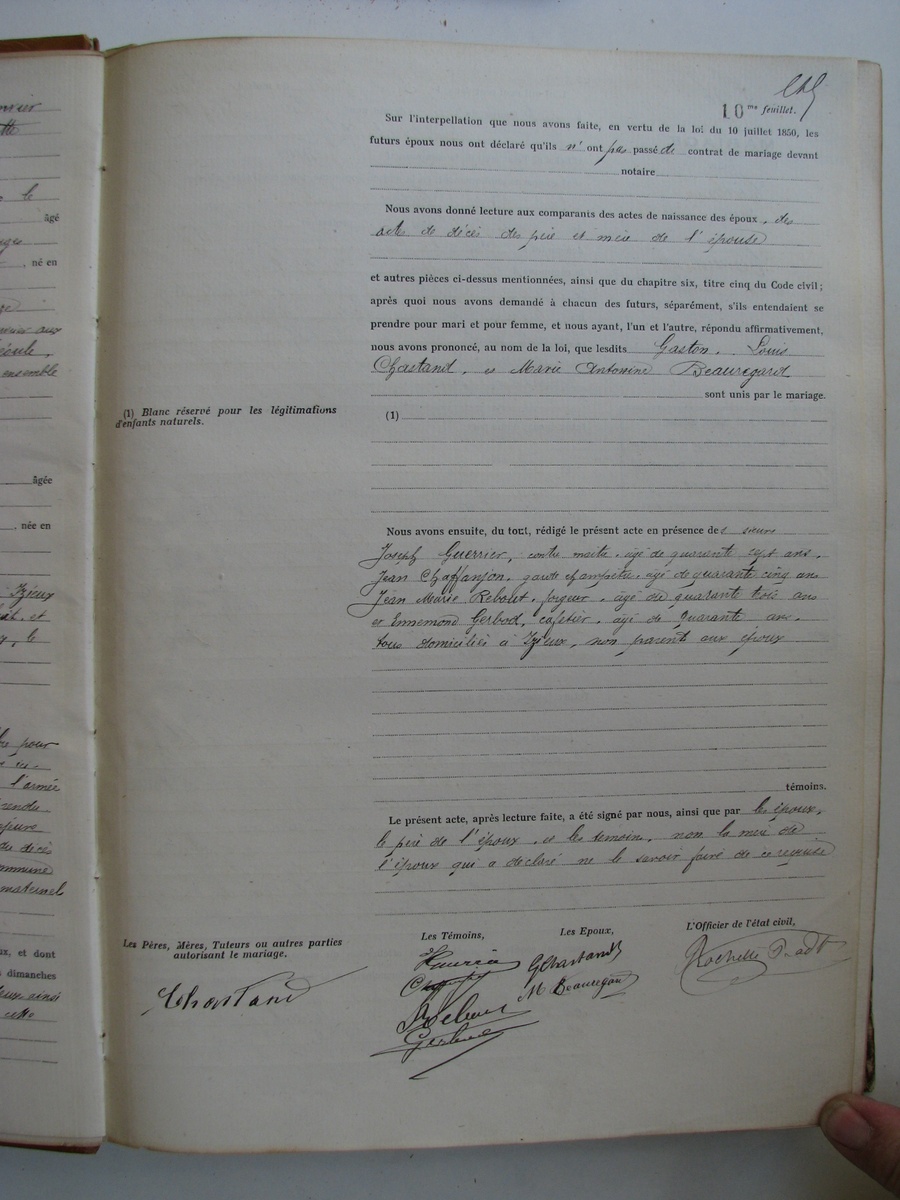 nvier
tte
le
âgé
, né en
ensemble
âgée
, née en
Izieux
et
le
pour
l'armée
rendu
du décès
commune
maternel
ux, et dont
s dimanches
ainsi
10me feuillet.
Sur l'interpellation que nous avons faite, en vertu de la loi du 10 juillet 1850, les
futurs époux nous ont déclaré qu'ils n' ont pas passé de contrat de mariage devant
notaire
Nous avons donné lecture aux comparants des actes de naissance des époux, des
actes de décès des père et mère de l'épouse
et autres pièces ci-dessus mentionnées, ainsi que du chapitre six, titre cinq du Code civil;
après quoi nous avons demandé à chacun des futurs, séparément, s'ils entendaient se
prendre pour mari et pour femme, et nous ayant, l'un et l'autre, répondu affirmativement,
nous avons prononcé, au nom de la loi, que lesdits Gaston, Louis
Chastand, et Marie Antonine Beauregard
sont unis par le mariage.
(1) Blanc réservé pour les légitimations
d'enfants naturels.
(1)
Nous avons ensuite, du tout, rédigé le présent acte en présence des sieurs
Joseph Guerrier, contre maître, âgé de quarante sept ans,
Jean Chaffanjon, garde champêtre, âgé de quarante cinq ans
Jean Marie Rebout, forgeur, âgé de quarante trois ans
et Ennemond Gerbod, cafetier, âgé de quarante ans,
tous domiciliés à Izieux, non parents aux époux
témoins.
Le présent acte, après lecture faite, a été signé par nous, ainsi que par les époux,
le père de l'époux, et les témoins, non la mère de
l'époux qui a déclaré ne le savoir faire de ce requise
Les Pères, Mères, Tuteurs ou autres parties
autorisant le mariage.
Chastand
Les Témoins,
Gerbod
Les Epoux,
G Chastand
M Beauregard
L'Officier de l'état civil,
Rochette